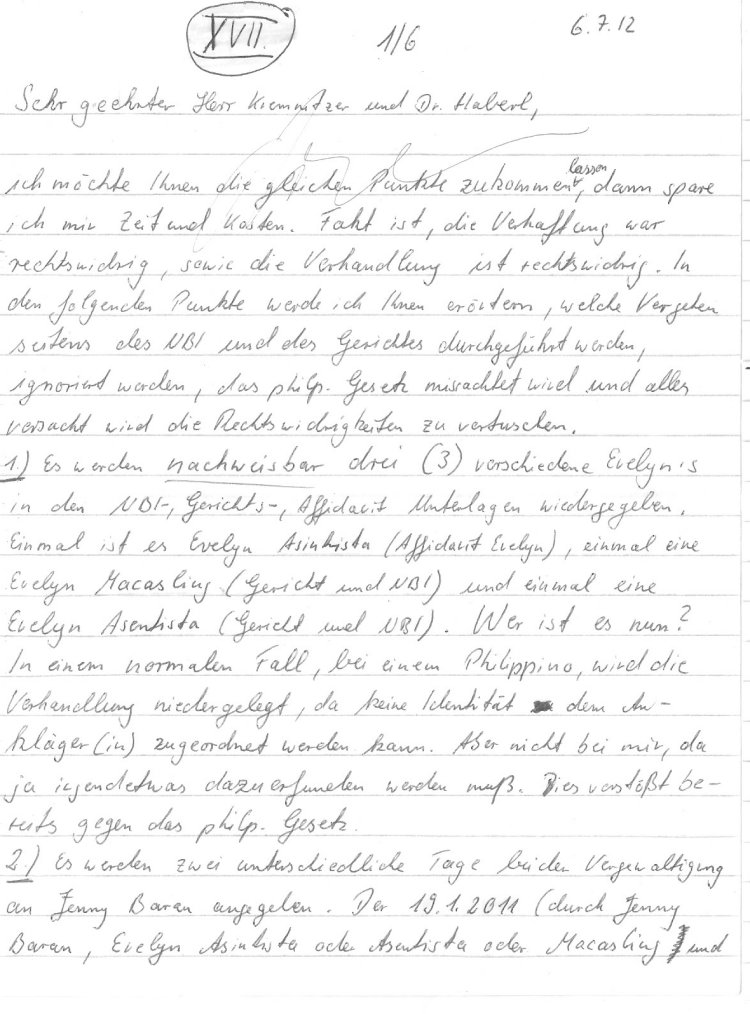 XVII.
1/6
6.7.12
Sehr geehrter Herr Kremnitzer und Dr. Haberl,
ich möchte Ihnen die gleichen Punkte zukommen lassen, dann spare
ich mir Zeit und Kosten. Fakt ist, die Verhaftung war
rechtswidrig, sowie die Verhandlung ist rechtswidrig. In
den folgenden Punkte werde ich Ihnen erörtern, welche Vergehen
seitens des NBI und des Gerichtes durchgeführt werden,
ignoriert werden, das philp. Gesetz missachtet wird und alles
versucht wird die Rechtswidrigkeiten zu vertuschen.
1.) Es werden nachweisbar drei (3) verschiedene Evelyn's
in den NBI-, Gerichts-, Affidavit Unterlagen wiedergegeben.
Einmal ist es Evelyn Asinhista (Affidavit Evelyn), einmal eine
Evelyn Macasling (Gericht und NBI) und einmal eine
Evelyn Asentista (Gericht und NBI). Wer ist es nun?
In einem normalen Fall, bei einem Philippino, wird die
Verhandlung niedergelegt, da keine Identität dem An-
kläger(in) zugeordnet werden kann. Aber nicht bei mir, da
ja irgendetwas dazuerfunden werden muß. Dies verstößt be-
reits gegen das philp. Gesetz.
2.) Es werden zwei unterschiedliche Tage bei der Vergewaltigung
an Jenny Baran angegeben. Der 19.1.2011 (durch Jenny
Baran, Evelyn Asinhista oder Asentista oder Macasling und